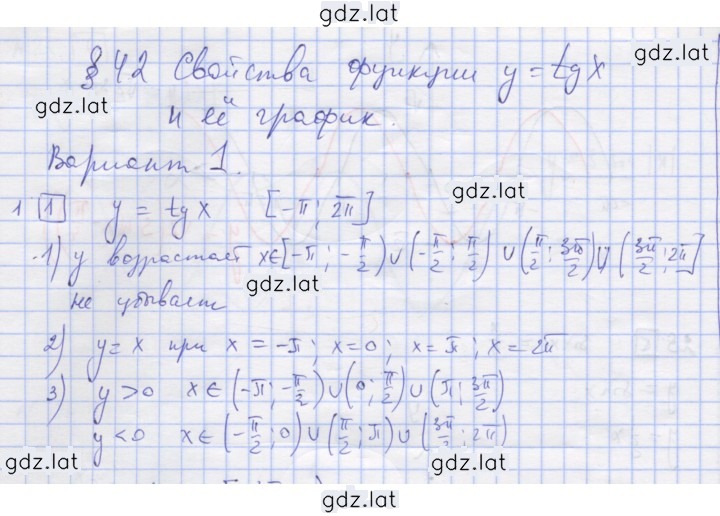 gdz.lat
§ 42 Свойства функции y = tg x
gdz.lat
и её график.
Вариант 1.
gdz.lat
1 [1] y = tg x [-π; 2π]
1) y возрастает x∈[-π; -π/2) ∪ (-π/2; π/2) ∪ (π/2; 3π/2) ∪ (3π/2; 2π]
gdz.lat
не убывает
2) y = x при x = -π; x = 0; x = π; x = 2π
3) y > 0 x ∈ (-π; -π/2) ∪ (0; π/2) ∪ (π; 3π/2)
y < 0 x ∈ (-π/2; 0) ∪ (π/2; π) ∪ (3π/2; 2π)
gdz.lat gdz.lat
gdz.lat